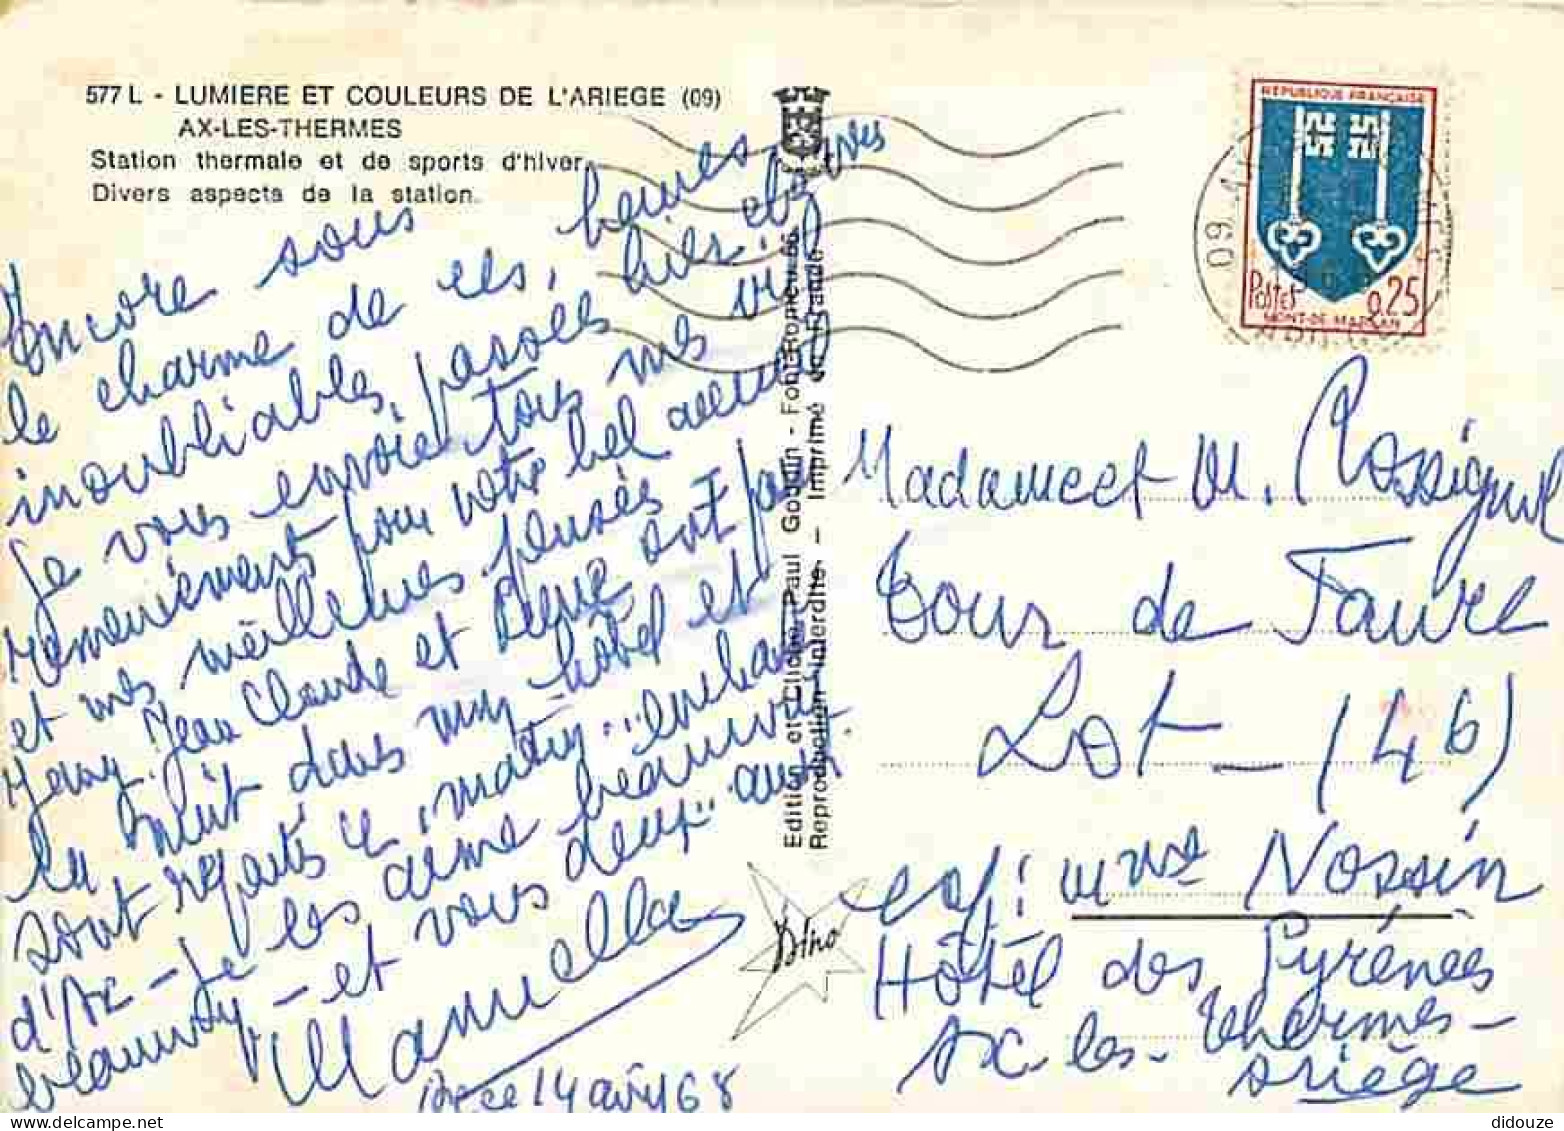 577 L - LUMIERE ET COULEURS DE L'ARIEGE (09)
AX-LES-THERMES
Station thermale et de sports d'hiver.
Divers aspects de la station.
Encore sous
le charme de ces, heures
inoubliables, passées hier, chères
je vous envoie tous mes vifs
remerciements pour votre bel accueil
et mes meilleures pensées -
Jeany. Jean Claude et Pierre ont passé
la nuit dans mon hôtel et
sont repartis ce, matin..
d'Ax - Je les aime beaucoup
beaucoup, - et vous deux" aussi
Manuella
ce 14 avril 68
Edition et Cliché Paul Gouzin - Font-Romeu 66
Reproduction interdite - Imprimé en France
Dino
REPUBLIQUE FRANÇAISE
POSTES
0,25
MONT-DE-MARSAN
09
Madame et M. Rossignol
Tour de Faure
Lot - (46)
exp: Mme Nossin
Hôtel des Pyrénées
Ax-les-Thermes-
Ariège
didouze